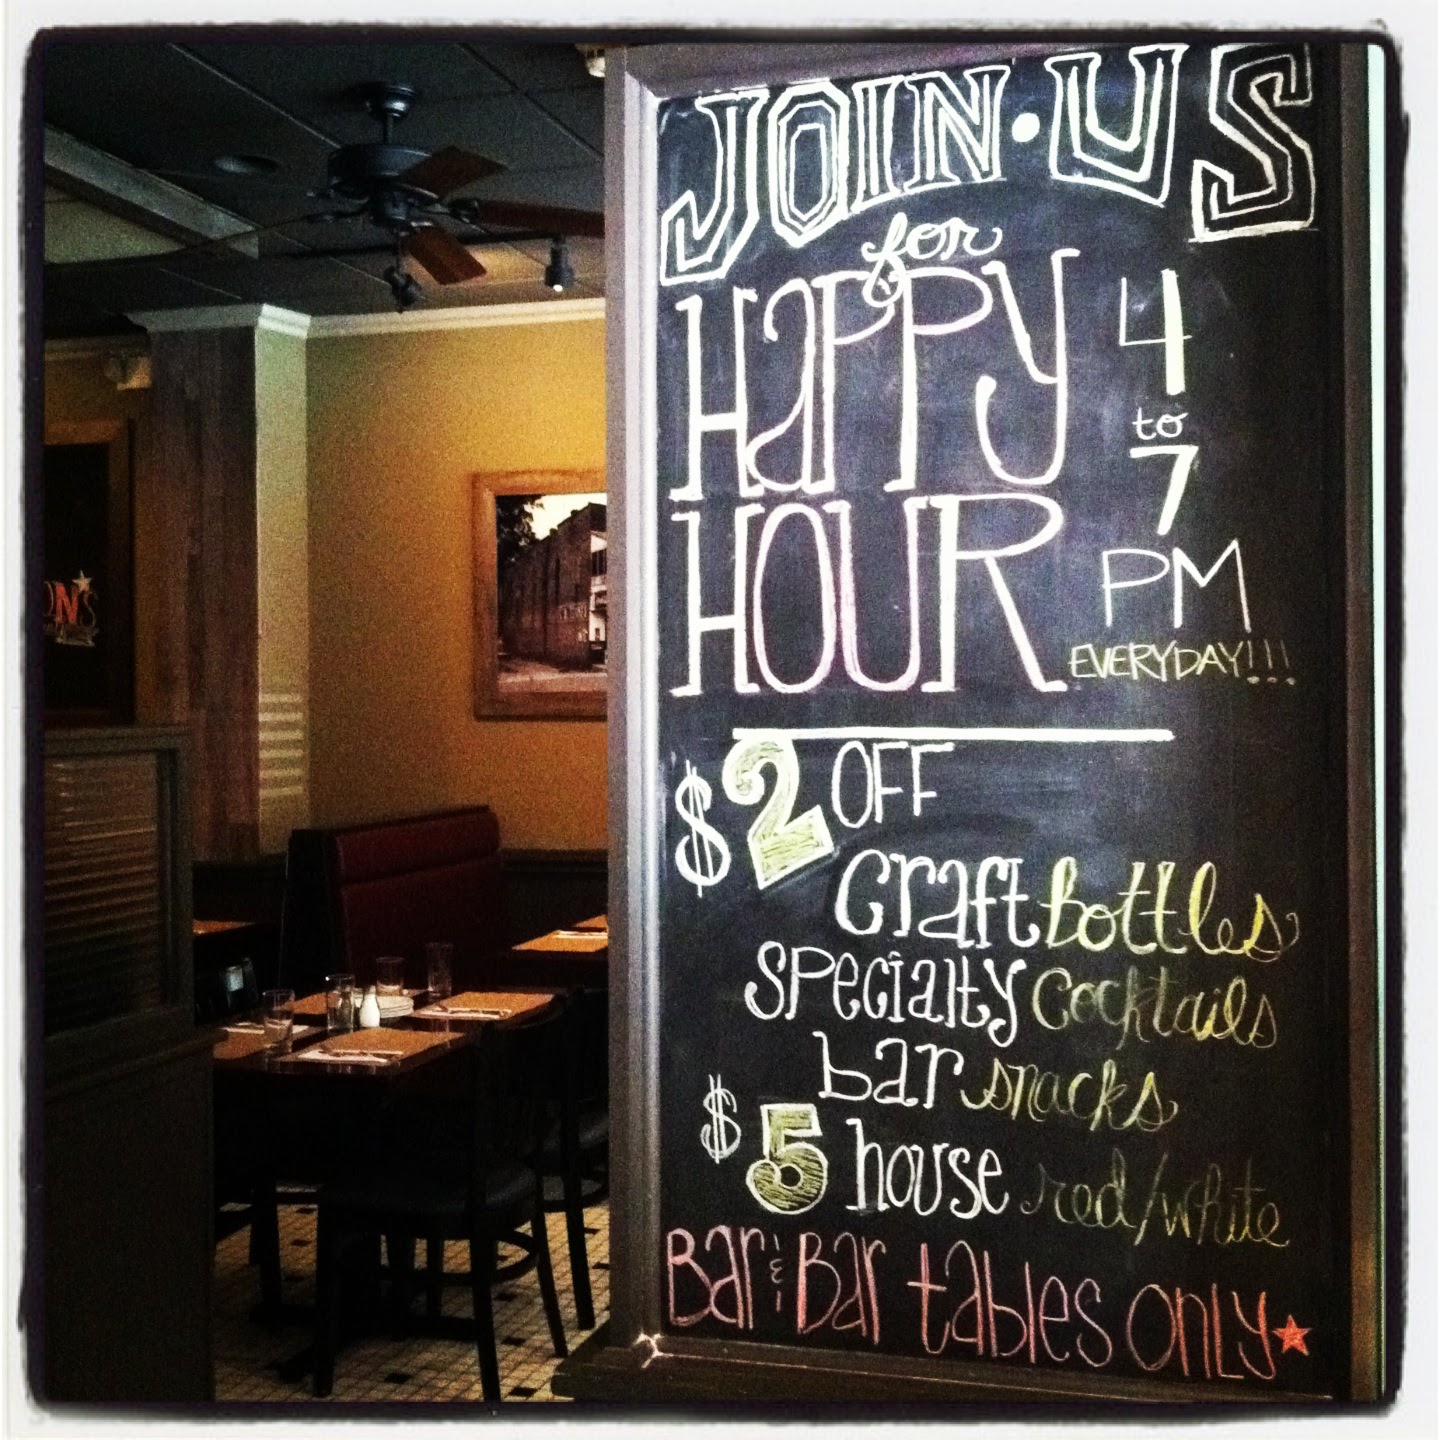 JOIN·US
for
HAPPY
HOUR
4
to
7
PM
EVERYDAY!!!
$2 OFF
craft bottles
specialty cocktails
bar snacks
$5 house red/white
Bar & Bar tables only